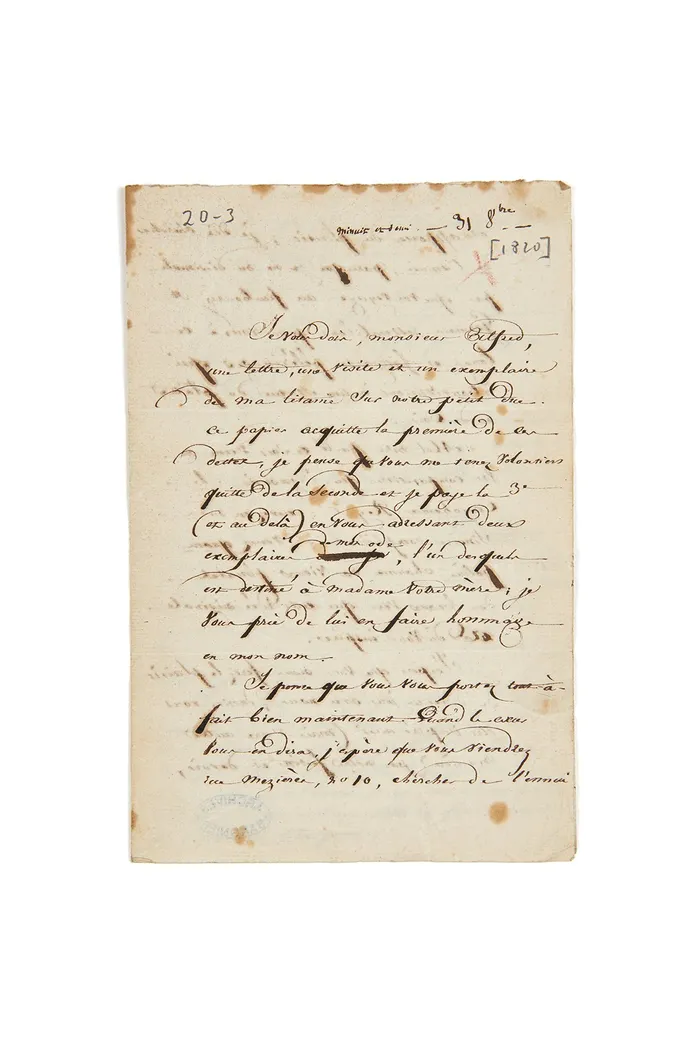 20-3
minuit et demi. — 31 8bre —
[1820]
Je vous dois, monsieur Alfred,
une lettre, une visite et un exemplaire
de ma litanie sur notre petit Duc.
ce papier acquitte la première de ces
dettes, je pense que vous me tenez volontiers
quitte de la seconde et je paye la 3e
(et au delà) en vous adressant deux
de mon ode
exemplaires, l'un desquels
est destiné à madame votre mère; je
vous prie de lui en faire hommage
en mon nom.
Je pense que vous vous portez tout-à-
fait bien maintenant. Quand le cœur
vous en dira, j'espère que vous viendrez
rue Mezières, no 10, chercher de l'ennui